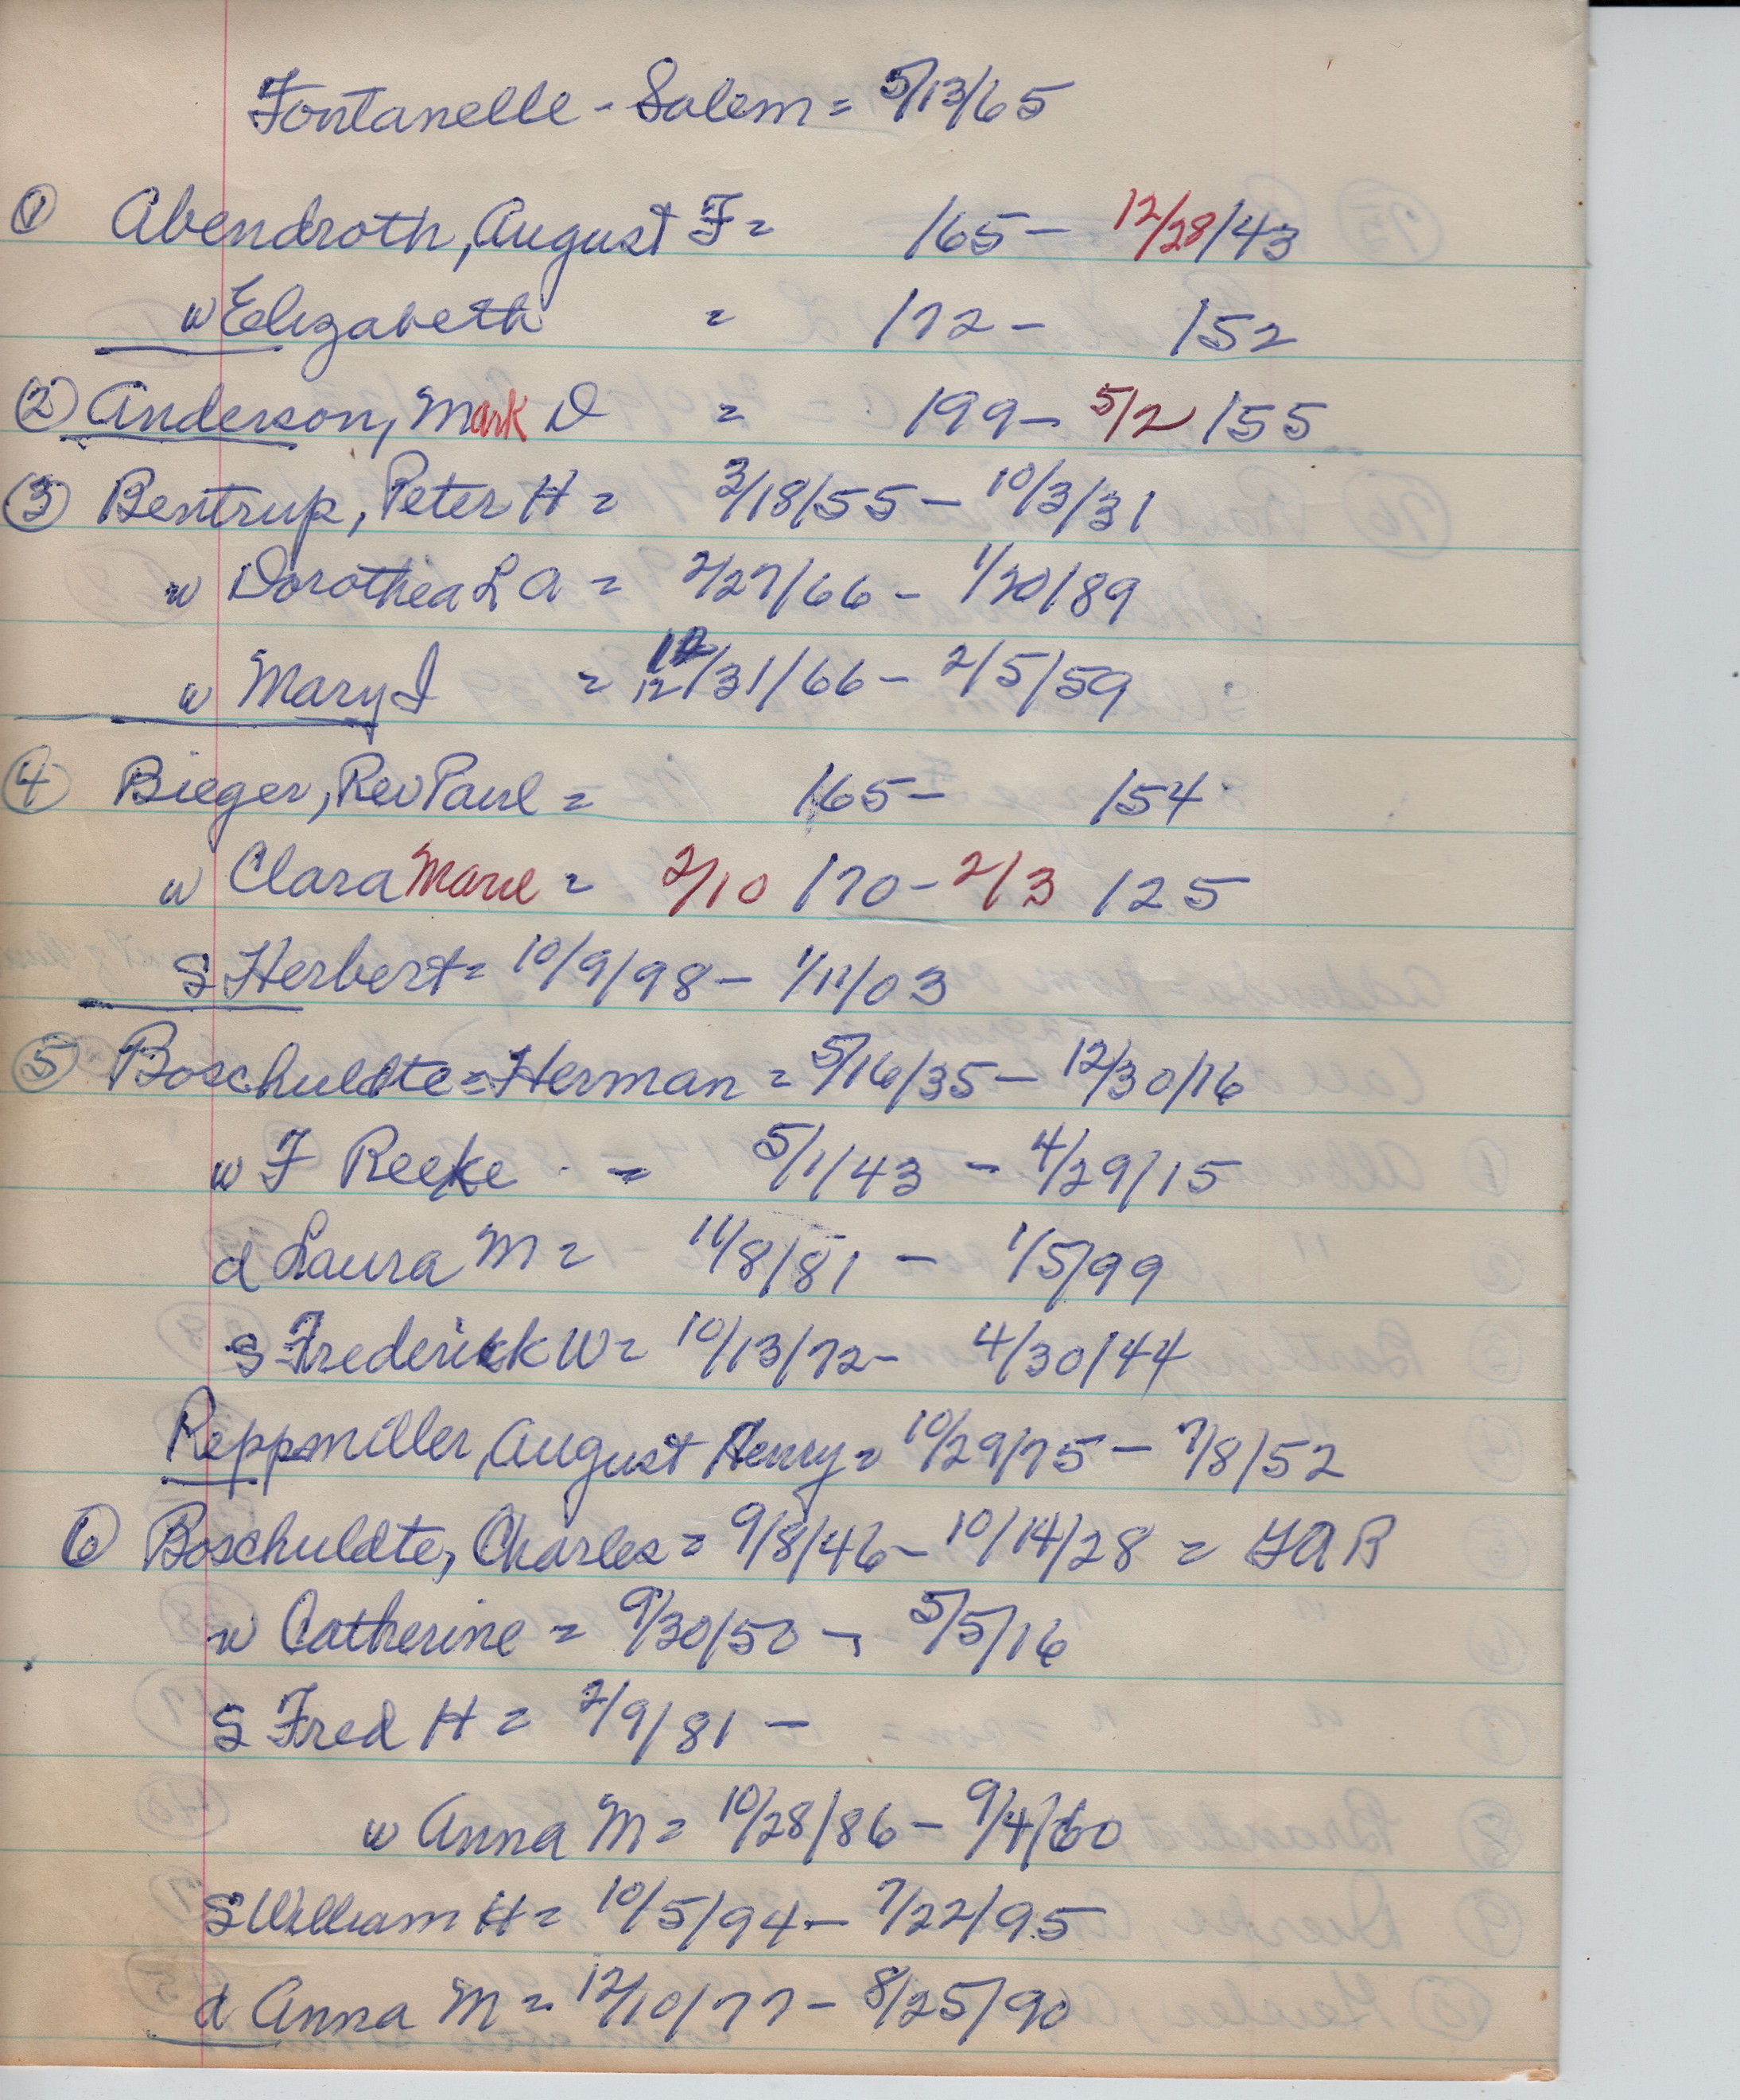 Fontanelle - Salem = 5/13/65
① Abendroth, August F = /65 - 12/28/43
w Elizabeth = /72 - /52
② Anderson, Mark D = /99 - 5/2/55
③ Bentrup, Peter H = 3/18/55 - 10/3/31
w Dorothea L A = 2/27/66 - 1/20/89
w Mary I = 12/31/66 - 2/5/59
④ Bieger, Rev Paul = /65 - /54
w Clara Marie = 2/10/70 - 2/3/25
S Herbert = 10/9/98 - 1/11/03
⑤ Boschuldte = Herman = 5/16/35 - 12/30/16
w F Reeke = 5/1/43 - 4/29/15
d Laura M = 11/8/81 - 1/5/99
S Frederick W = 10/13/72 - 4/30/44
Reppmiller, August Henry = 10/29/75 - 7/8/52
⑥ Boschuldte, Charles = 9/8/46 - 10/14/28 = GAR
w Catherine = 9/30/50 - 5/5/16
S Fred H = 2/9/81 -
w Anna M = 10/28/86 - 9/4/60
S William H = 10/5/94 - 7/22/95
d Anna M = 12/10/77 - 8/25/90